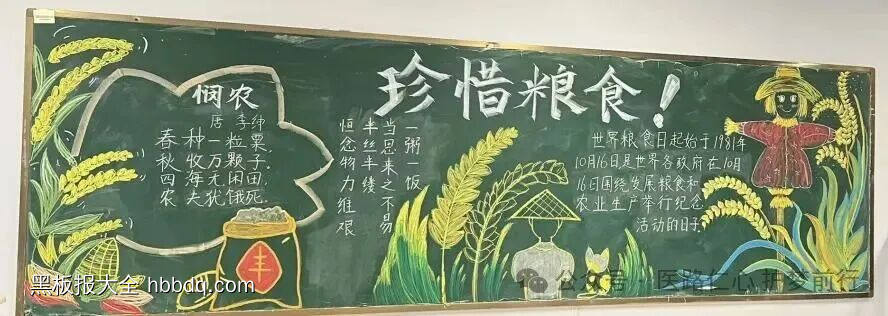 珍惜粮食！
悯农
唐 李绅
春种一粒粟，
秋收万颗子。
四海无闲田，
农夫犹饿死。
一粥一饭
当思来之不易
半丝半缕
恒念物力维艰
世界粮食日起始于1981年
10月16日是世界各政府在10月
16日围绕发展粮食和
农业生产举行纪念
活动的日子
丰
黑板报大全 hbbdq.com
公众号·医路仁心护梦前行